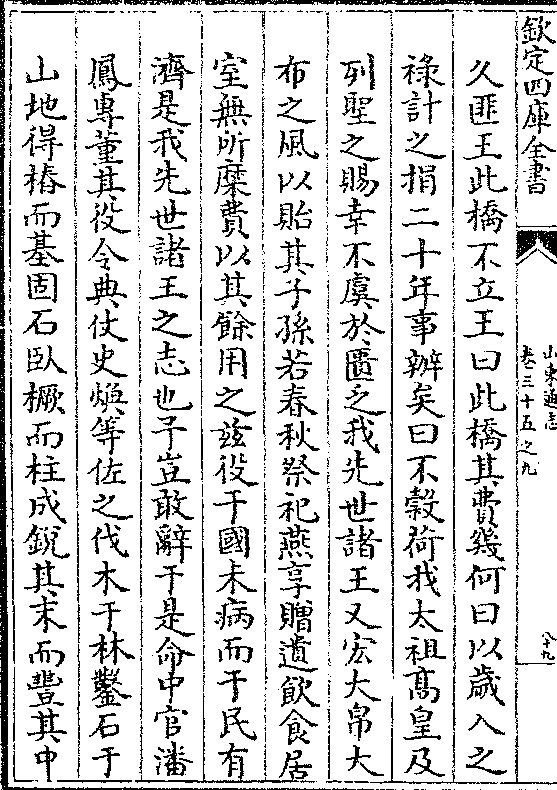 欽定四庫全書
山東通志
卷三十五之九
八九
久匪王此橋不立王曰此橋其費幾何曰以歲入之
祿計之捐二十年事辦矣曰不穀荷我太祖髙皇及
列聖之賜幸不虞於匱乏我先世諸王又宏大帛大
布之風以貽其子孫若春秋祭祀燕享贈遺飲食居
室無所糜費以其餘用之兹役于國未病而于民有
濟是我先世諸王之志也予豈敢辭于是命中官潘
鳳專董其役令典仗史煥等佐之伐木于林鑿石于
山地得樁而基固石卧橛而柱成銳其末而豐其中